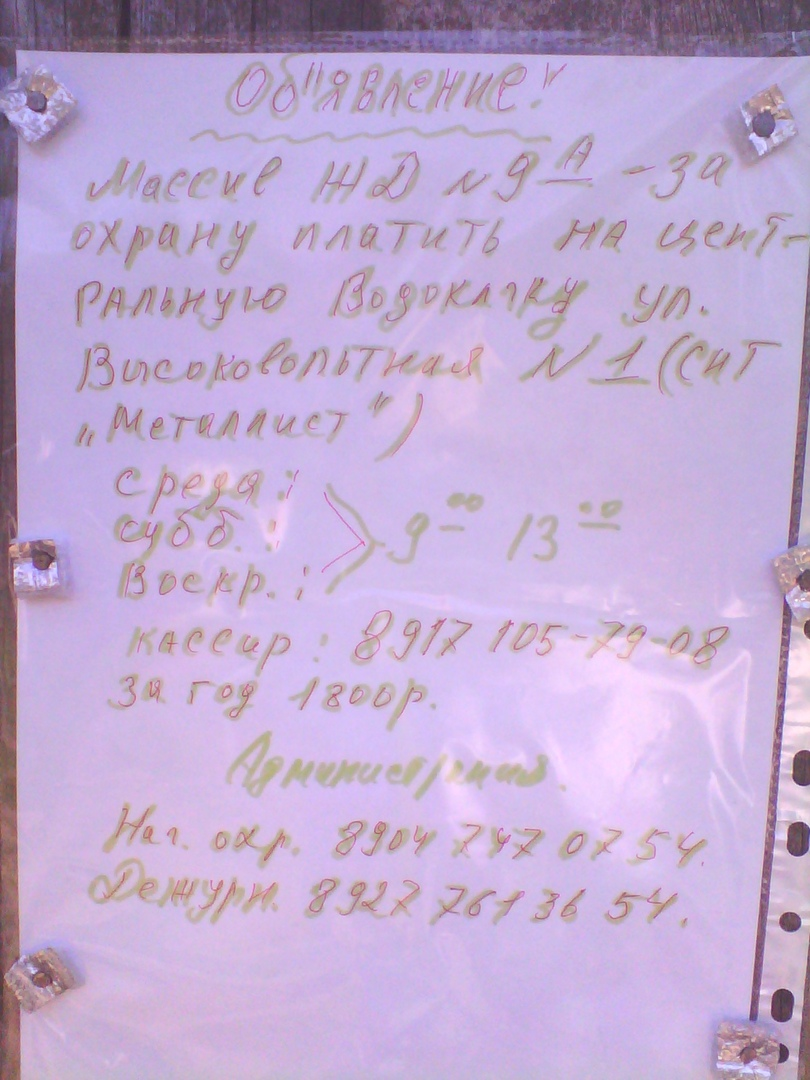 Об"явление!
Массив ЖД №9А - за
охрану платить на цент-
ральную Водокачку ул.
Высоковольтная №1 (СНТ
„Металлист")
среда :
субб. : 9 00 13 00
Воскр. :
кассир : 8917 105-79-08
за год 1800р.
Администрация.
Нач. охр. 8904 747 07 54.
Дежурн. 8927 761 36 54.